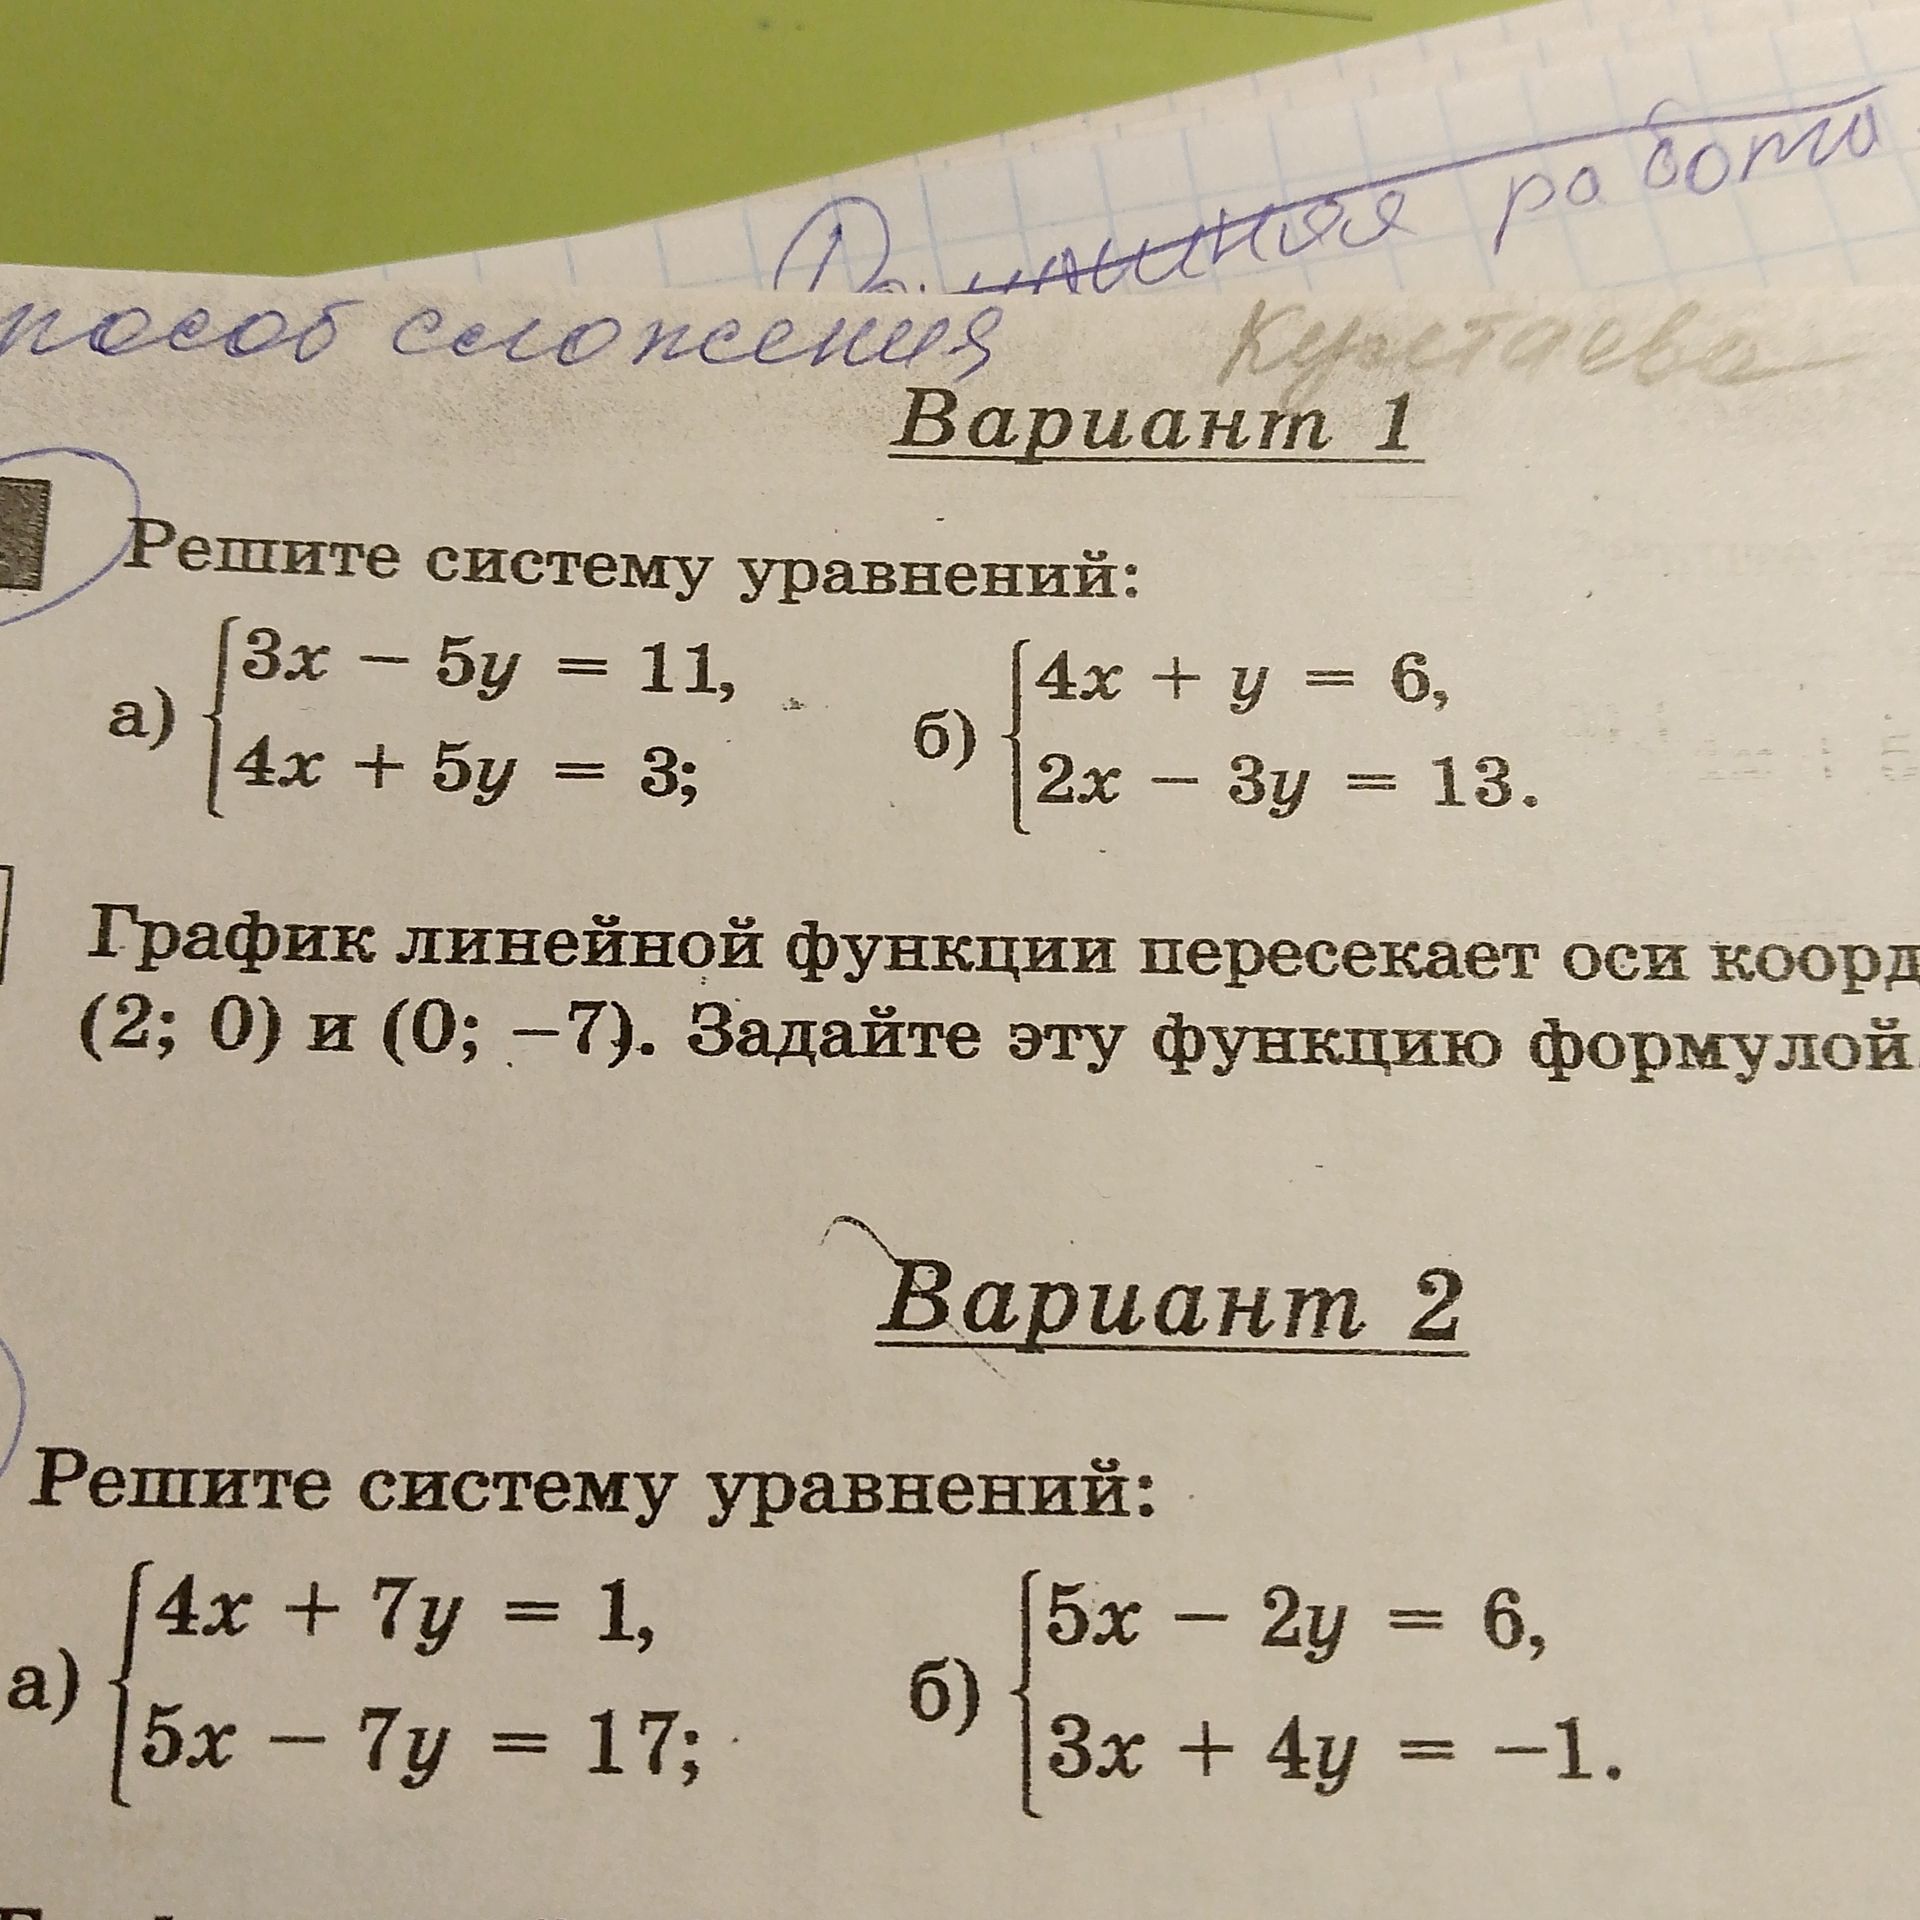 Домашняя работа
пособ сложения
Вариант 1
Решите систему уравнений:
а) {3x − 5y = 11,
4x + 5y = 3;
б) {4x + y = 6,
2x − 3y = 13.
График линейной функции пересекает оси коорд
(2; 0) и (0; −7). Задайте эту функцию формулой.
Вариант 2
Решите систему уравнений:
а) {4x + 7y = 1,
5x − 7y = 17;
б) {5x − 2y = 6,
3x + 4y = −1.